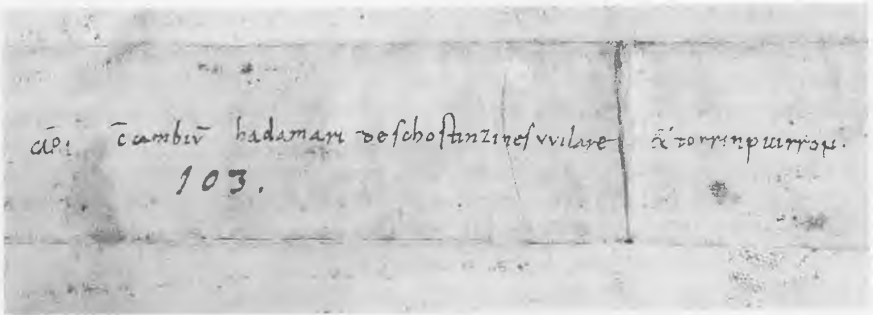 c̄ambiū hadamari de schostinzinesvvilare & torrinpuirron.
103.